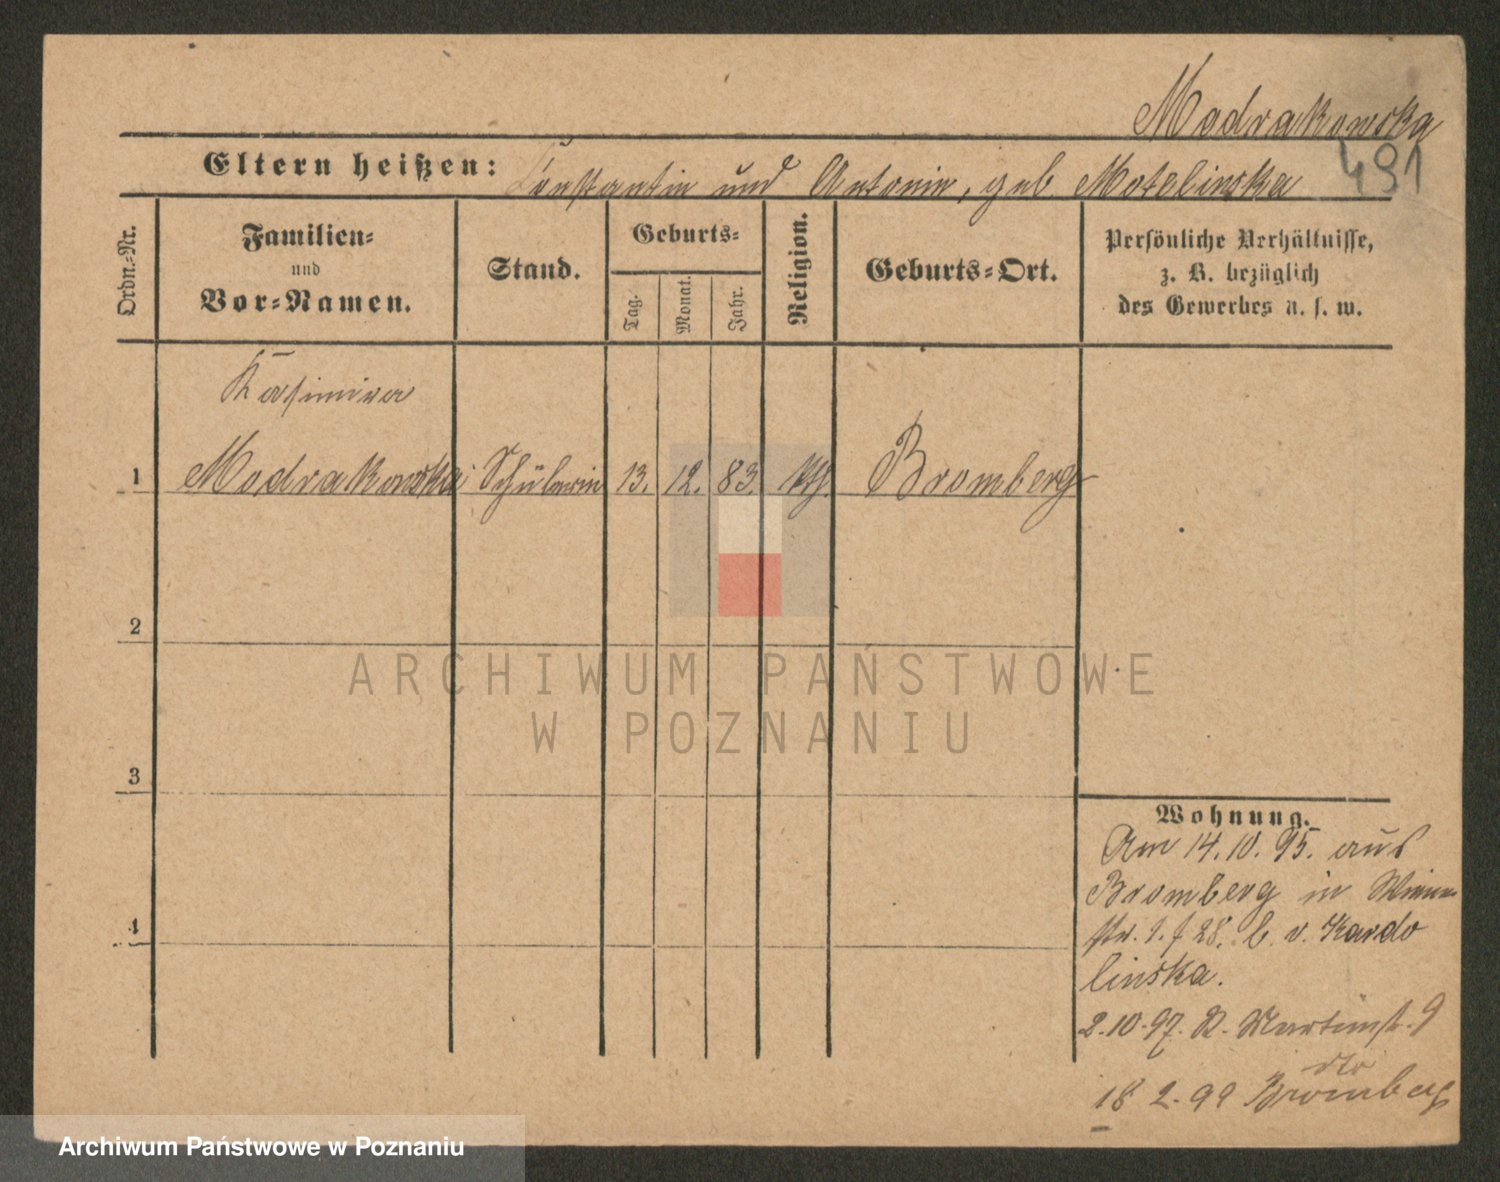 Modrakowska
491
Eltern heißen: Constantin und Antonin, geb Motelinska
Ordn.-Nr.
Familien-
und
Vor-Namen.
Stand.
Geburts-
Tag.
Monat.
Jahr.
Religion.
Geburts-Ort.
Persönliche Verhältnisse,
z. B. bezüglich
des Gewerbes u. s. w.
Kasimira
1 Modrakowska Schülerin 13. 12. 83. kth. Bromberg
2
3
4
ARCHIWUM PAŃSTWOWE
W POZNANIU
Wohnung.
Am 14.10.95. aus
Bromberg in
str. 1. b. v. Kardo
linska.
2.10.97. Martinst. 9
dto
18 2. 99 Bromberg
Archiwum Państwowe w Poznaniu